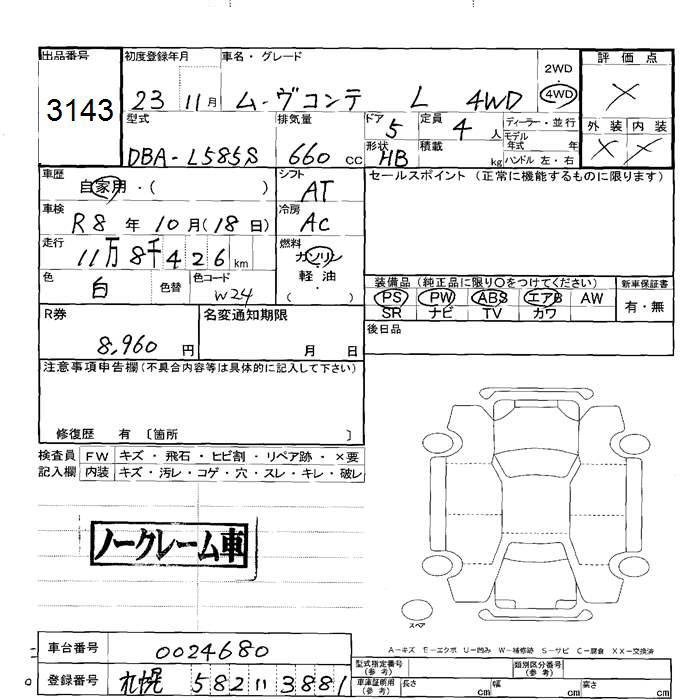 出品番号 初度登録年月 車名・グレード 2WD 評価点
3143 23 11月 ムーヴコンテ L 4WD 4WD ×
型式 排気量 ドア 5 定員 4 人 ディーラー・並行 外装 内装
DBA-L585S 660 CC 形状 HB 積載 kg モデル年式 年 × ×
ハンドル 左・右
車歴 自家用・( ) シフト AT セールスポイント (正常に機能するものに限ります)
車検 R8 年 10 月 (18 日) 冷房 AC
走行 11万 8千 4 2 6 km 燃料 ガソリン・軽油・( )
色 白 色替 色コード W24 装備品 (純正品に限り〇をつけてください) 新車保証書
PS PW ABS エアB AW 有・無
SR ナビ TV カワ
R券 8,960 円 名変通知期限 月 日 後日品
注意事項申告欄 (不具合内容等は具体的に記入して下さい)
修復歴 有 〔箇所 〕
検査員 FW キズ・飛石・ヒビ割・リペア跡・×要
記入欄 内装 キズ・汚レ・コゲ・穴・スレ・キレ・破レ
ノークレーム車
スペア
A-キズ E-エクボ U-凹み W-補修跡 S-サビ C-腐食 XX-交換済
車台番号 0024680 型式指定番号(参考) 類別区分番号(参考)
登録番号 札幌 582 い 3881 車庫証明用(参考) 長さ cm 幅 cm 高さ cm